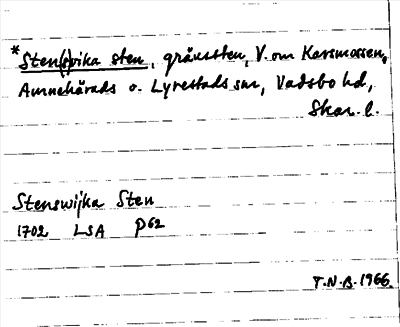 *Sten(s)vika sten, gränssten, V. om Karsmossen,
Amnehärads o. Lyrestads snr, Vadsbo hd,
Skar. l.
Stenswijka Sten
1702 LSA P62
T.N.B. 1966.